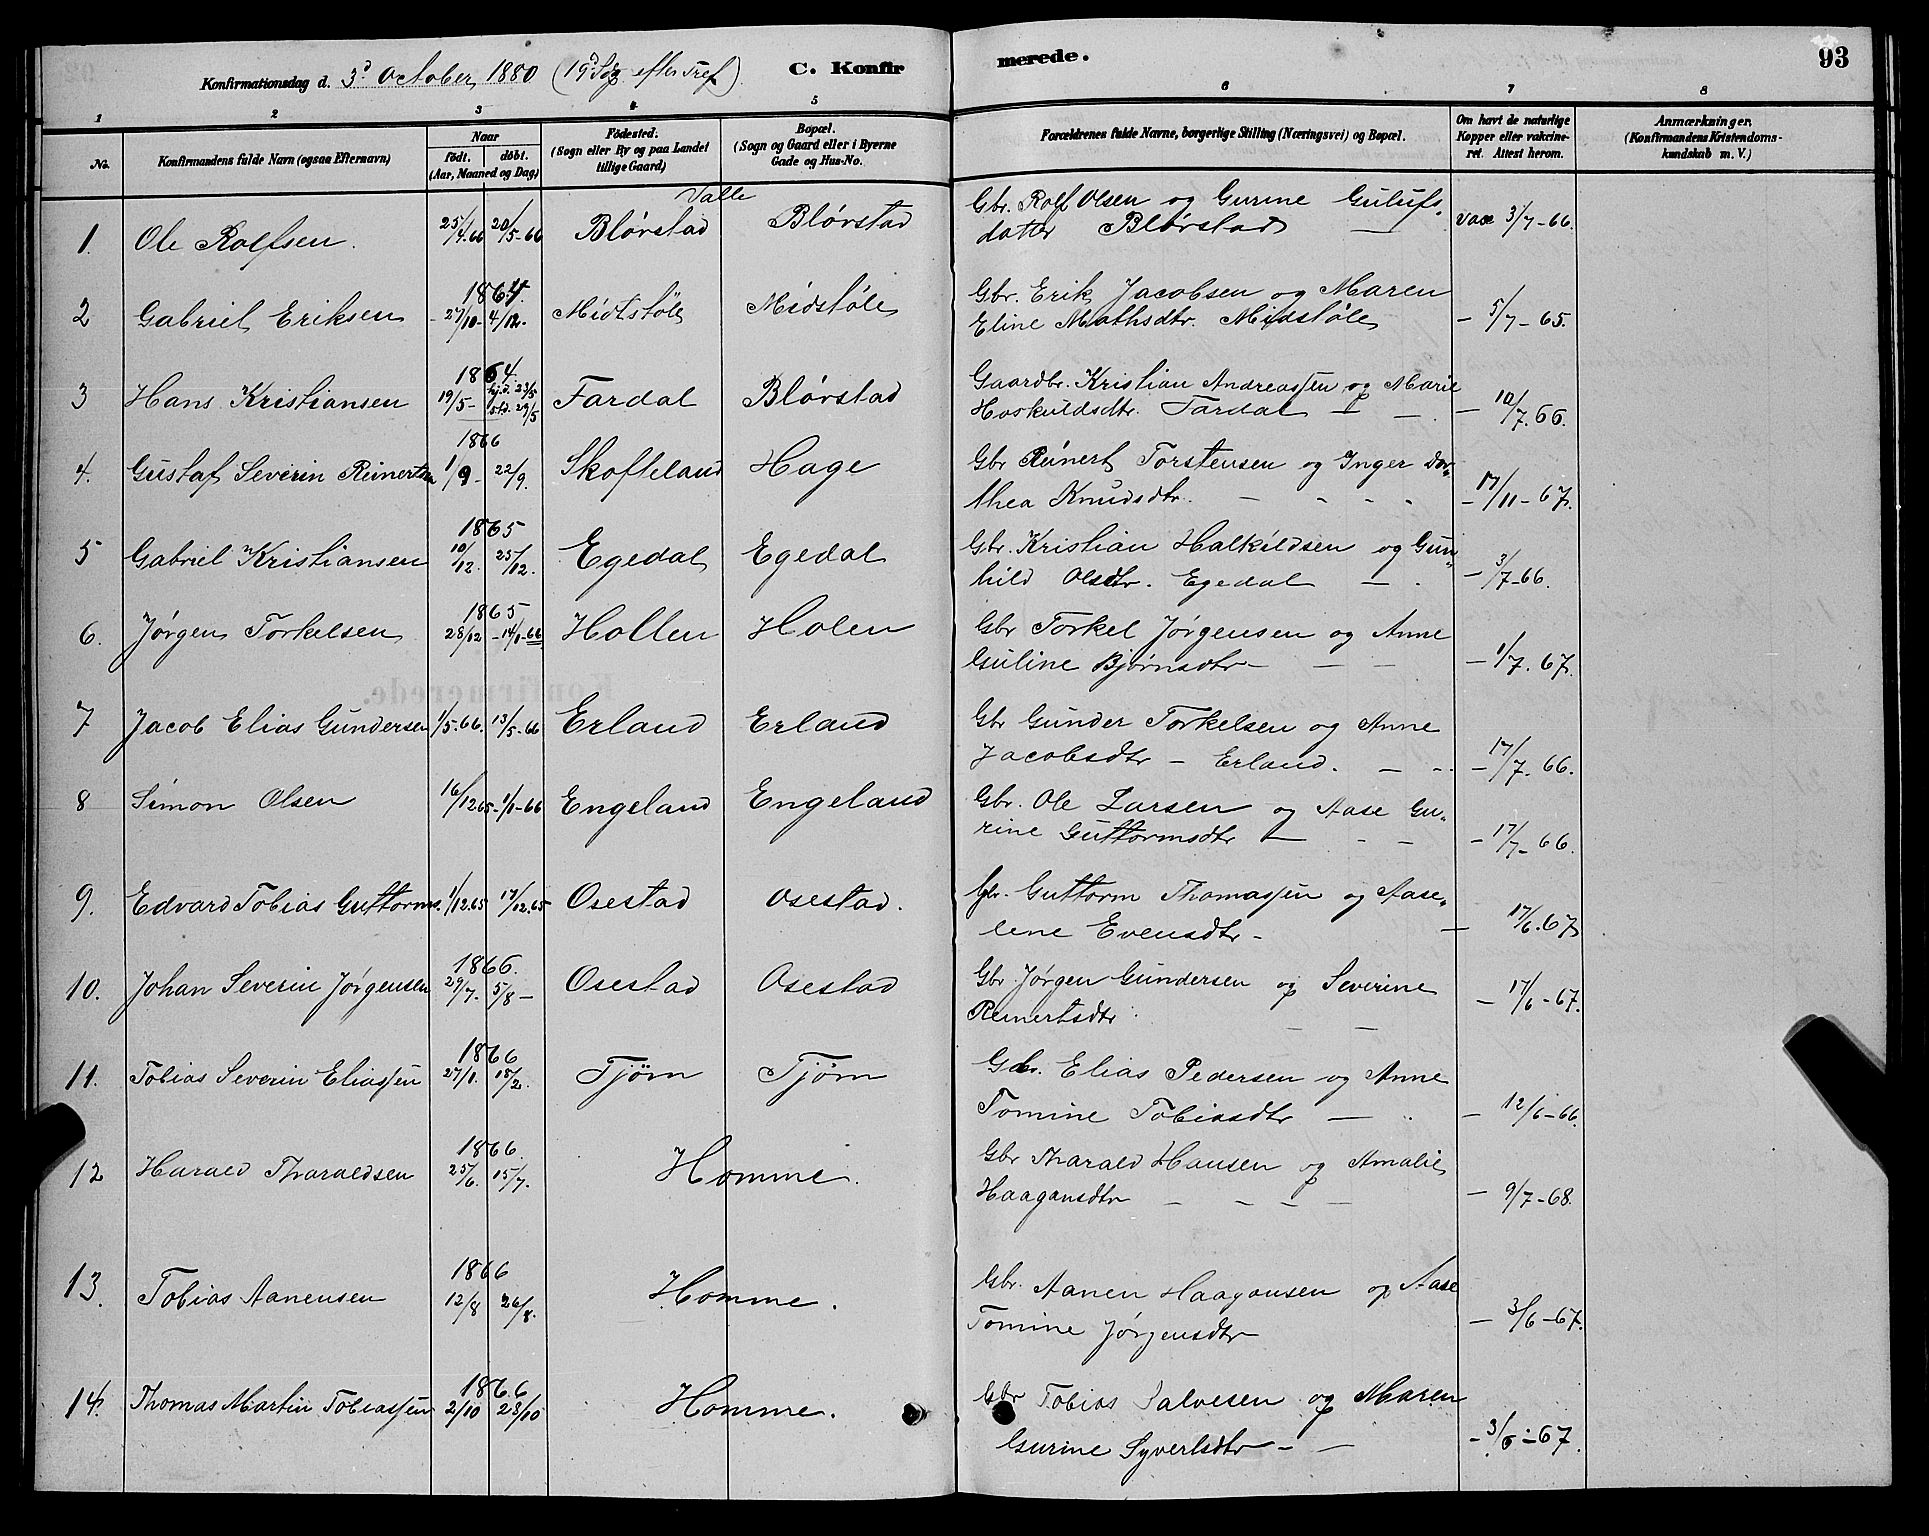 93
Konfirmationsdag d. 3d October 1880 (19d Sdg. efter Tref) C. Konfirmerede.
1 2 3 4 5 6 7 8
No. Konfirmandens fulde Navn (ogsaa Efternavn) Naar født. døbt. (Aar, Maaned og Dag) Fødested. (Sogn eller By og paa Landet tillige Gaard) Bopæl. (Sogn og Gaard eller i Byerne Gade og Hus-No. Forældrenes fulde Navne, borgerlige Stilling (Næringsvei) og Bopæl. Om havt de naturlige Kopper eller vakcineret. Attest herom. Anmærkninger. (Konfirmandens Kristendomskundskab m. V.)
Valle
1. Ole Rolfsen. 25/4.66 20/5-66 Blørstad Blørstad Gbr. Rolf Olsen og Gurine Gulufs-
datter Blørstad — vac 3/7-66.
1864.
2 Gabriel Eriksen 27/10- 4/12. Midtstøle Midstøle Gbr. Erik Jacobsen og Maren
Eline Mathsdtr. Midstøle — 5/7-65.
1864.
3 Hans Kristiansen 19/5- hj.d. 23/5 st.d. 29/5 Fardal Blørstad Gaardbr. Kristian Andreassen og Marie
Hoskuldsdtr. Fardal — — 10/7.66.
1866
4. Gustaf Severin Reinertsen 1/9- 22/9. Skofteland Hage Gbr Reinert Torstensen og Inger Dor-
thea Knudsdtr. - - - - - 17/11-67.
1865
5 Gabriel Kristiansen 10/12. 25/12. Egedal Egedal Gbr. Kristian Halkildsen og Gun-
hild Olsdtr. Egedal — - 3/7-66.
1865
6. Jørgen Torkelsen 28/12 -14/1-66 Hollen Holen Gbr Torkel Jørgensen og Anne
Guline Bjørnsdtr - - - - 1/7.67.
7 Jacob Elias Gundersen 1/5.66. 13/5-66 Erland Erland Gbr Gunder Torkelsen og Anne
Jacobsdtr - Erland. - - - 17/7.66.
8 Simon Olsen 16/12 65- 1/1-66 Engeland Engeland Gbr. Ole Larsen og Aase Gu-
rine Guttormsdtr - - - - 17/7-66.
9. Edvard Tobias Guttorms. 1/12.65 17/12.65 Osestad Osestad. Gbr. Guttorm Thomassen og Aase-
lene Evensdtr - — 17/6.67
1866.
10. Johan Severin Jørgensen 29/7. 5/8- Osestad Osestad Gbr Jørgen Gundersen og Severine
Reinertsdtr - - - 17/6-67.
1866
11. Tobias Severin Eliassen 27/1. 18/2. Tjøm Tjøm Gbr. Elias Pedersen og Anne
Tomine Tobiasdtr — - 12/6-66.
1866.
12 Harald Tharaldsen 25/6. 15/7. Homme. Gbr Tharald Hansen og Amalie
Haagansdtr - - - - - 9/7-68.
1866
13. Tobias Aanensen 12/8 26/8. Homme. Gbr. Aanen Haagansen og Aase
Tomine Jørgensdtr - 3/6-67.
1866
14. Thomas Martin Tobiassen 2/10 28/10 Homme. Gbr Tobias Salvesen og Maren
Gurine Syvertsdtr - - - 3/6-67.